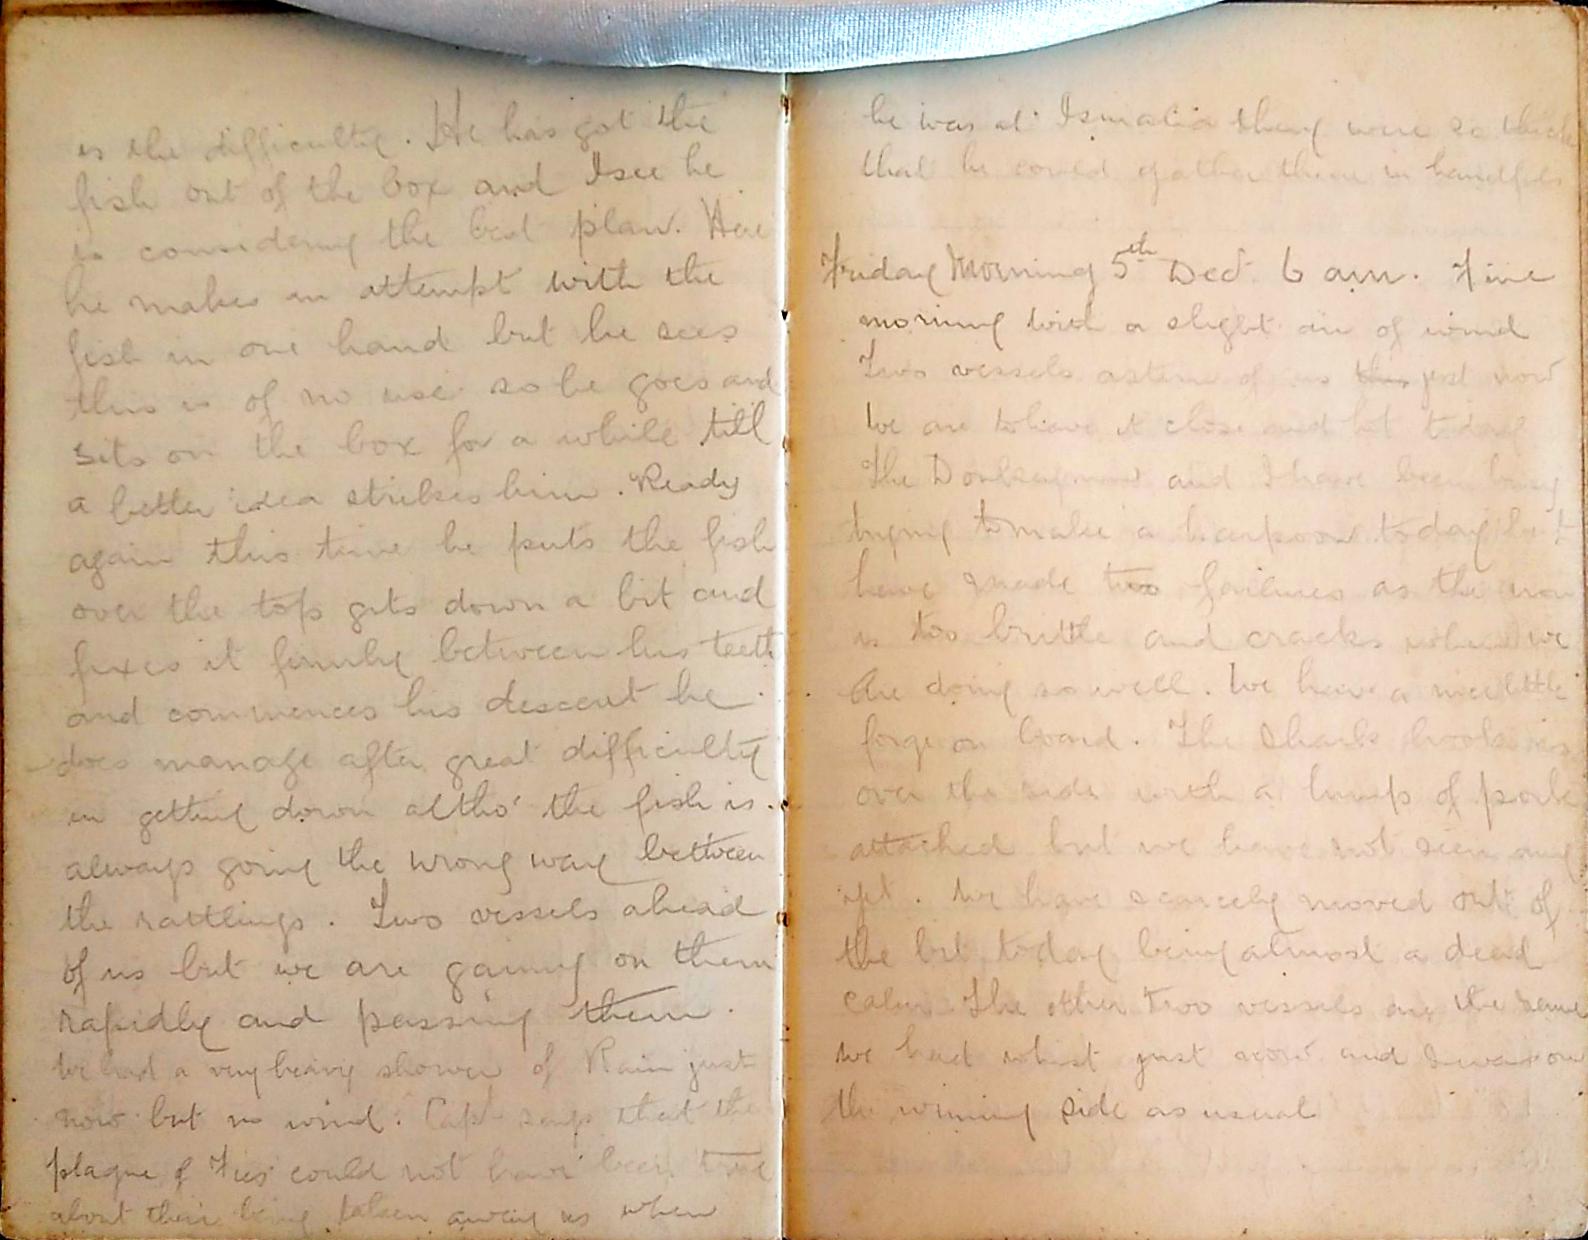 is the difficulty. He has got the
fish out of the box and I see he
is considering the best plan. Here
he makes an attempt with the
fish in one hand but he sees
this is of no use so he goes and
sits on the box for a while till
a better idea strikes him. Ready
again this time he puts the fish
over the top gets down a bit and
fixes it firmly between his teeth
and commences his descent he
does manage after great difficulty
in getting down altho' the fish is
always going the wrong way between
the rattlings. Two vessels ahead
of us but we are gaining on them
rapidly and passing them.
We had a very heavy shower of Rain just
now but no wind. Capt says that the
plague of Flies could not have been true
about their being taken away as when
he was at Ismalia they were so thick
that he could gather them in handfuls
Friday Morning 5th Decr 6 am. Fine
morning with a slight air of wind
Two vessels astern of us this just now
We are to have it close and hot today
The Donkeyman and I have been busy
trying to make a harpoon today but
have made two failures as the iron
is too brittle and cracks when we
are doing so well. We have a nice little
forge on board. The Shark hook is
over the side with a lump of pork
attached but we have not seen any
yet. We have scarcely moved out of
the bit today being almost a dead
calm The other two vessels are the same
We had whist just now and I was on
the winning side as usual